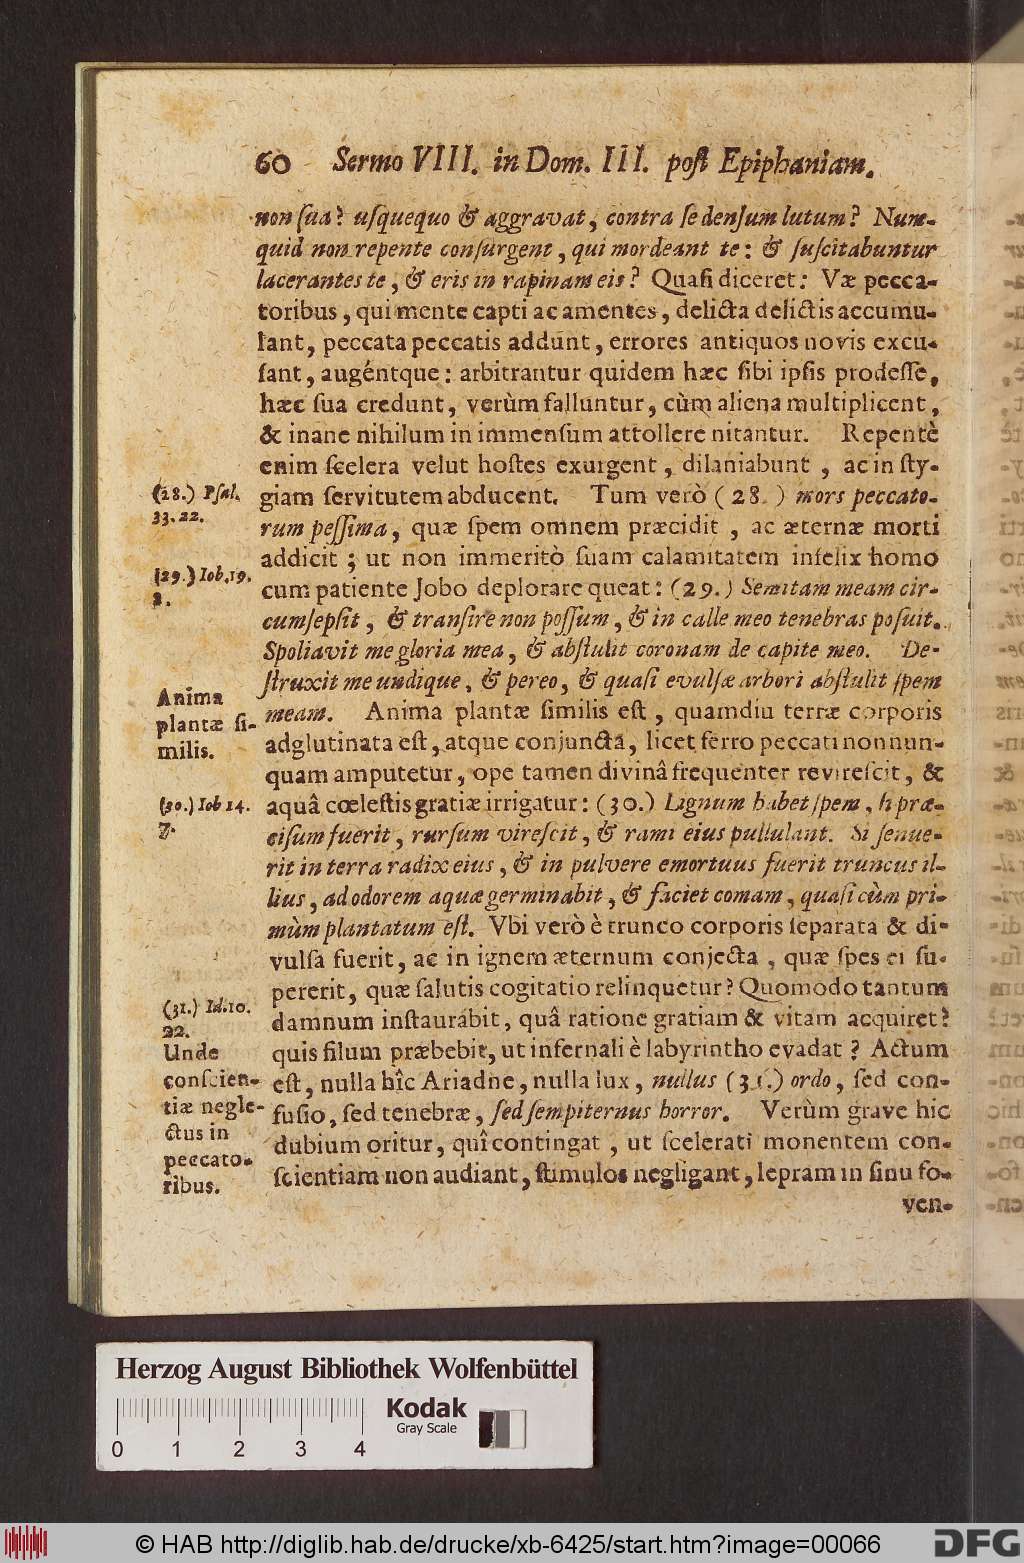 60 Sermo VIII. in Dom. III. post Epiphaniam.
non ſua? uſquequo & aggravat, contra ſe denſum lutum? Num-
quid non repente conſurgent, qui mordeant te: & ſuſcitabuntur
lacerantes te, & eris in rapinam eis? Quaſi diceret: Væ pecca-
toribus, qui mente capti ac amentes, delicta delictis accumu-
lant, peccata peccatis addunt, errores antiquos novis excu-
ſant, augéntque: arbitrantur quidem hæc ſibi ipſis prodeſſe,
hæc ſua credunt, verùm falluntur, cùm aliena multiplicent,
& inane nihilum in immenſum attollere nitantur. Repentè
enim ſcelera velut hoſtes exurgent, dilaniabunt, ac in ſty-
giam ſervitutem abducent. Tum verò (28.) mors peccato-
rum peſſima, quæ ſpem omnem præcidit, ac æternæ morti
addicit; ut non immeritò ſuam calamitatem infelix homo
cum patiente Jobo deplorare queat: (29.) Semitam meam cir-
cumſepſit, & tranſire non poſſum, & in calle meo tenebras poſuit.
Spoliavit me gloria mea, & abſtulit coronam de capite meo. De-
ſtruxit me undique, & pereo, & quaſi evulſæ arbori abſtulit ſpem
meam. Anima plantæ ſimilis eſt, quamdiu terræ corporis
adglutinata eſt, atque conjuncta, licet ferro peccati nonnun-
quam amputetur, ope tamen divinâ frequenter revireſcit, &
aquâ cœleſtis gratiæ irrigatur: (30.) Lignum habet ſpem, ſi præ-
ciſum fuerit, rurſum vireſcit, & rami eius pullulant. Si ſenue-
rit in terra radix eius, & in pulvere emortuus fuerit truncus il-
lius, ad odorem aquæ germinabit, & faciet comam, quaſi cùm pri-
mùm plantatum eſt. Vbi verò è trunco corporis ſeparata & di-
vulſa fuerit, ac in ignem æternum conjecta, quæ ſpes ei ſu-
pererit, quæ ſalutis cogitatio relinquetur? Quomodo tantum
damnum inſtaurabit, quâ ratione gratiam & vitam acquiret?
quis filum præbebit, ut infernali è labyrintho evadat? Actum
eſt, nulla hîc Ariadne, nulla lux, nullus (31.) ordo, ſed con-
fuſio, ſed tenebræ, ſed ſempiternus horror. Verùm grave hic
dubium oritur, quî contingat, ut ſcelerati monentem con-
ſcientiam non audiant, ſtimulos negligant, lepram in ſinu fo-
ven-
(28.) Pſal.
33. 22.
(29.) Iob. 19.
8.
Anima
plantæ ſi-
milis.
(30.) Iob 14.
7.
(31.) Id. 10.
22.
Unde
conſcien-
tiæ negle-
ctus in
peccato-
ribus.
Herzog August Bibliothek Wolfenbüttel
Kodak
Gray Scale
0 1 2 3 4
© HAB http://diglib.hab.de/drucke/xb-6425/start.htm?image=00066
DFG